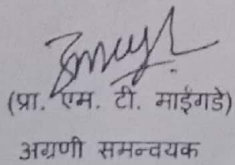 (प्रा. एम. टी. माईगडे)
अग्रणी समन्वयक